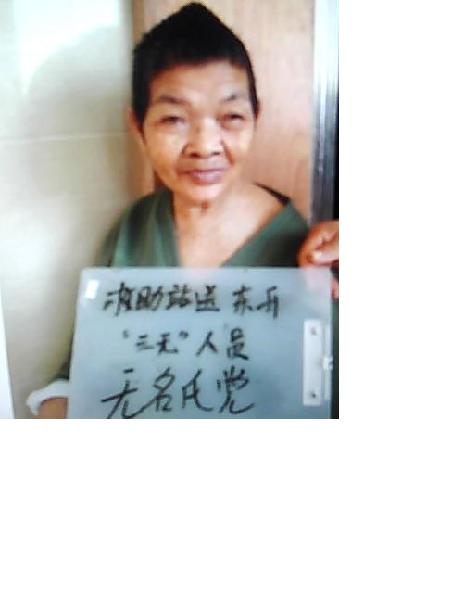 救助站送 东升
“三无”人员
无名氏党